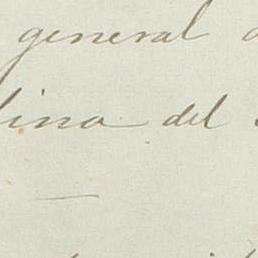 general
lina del